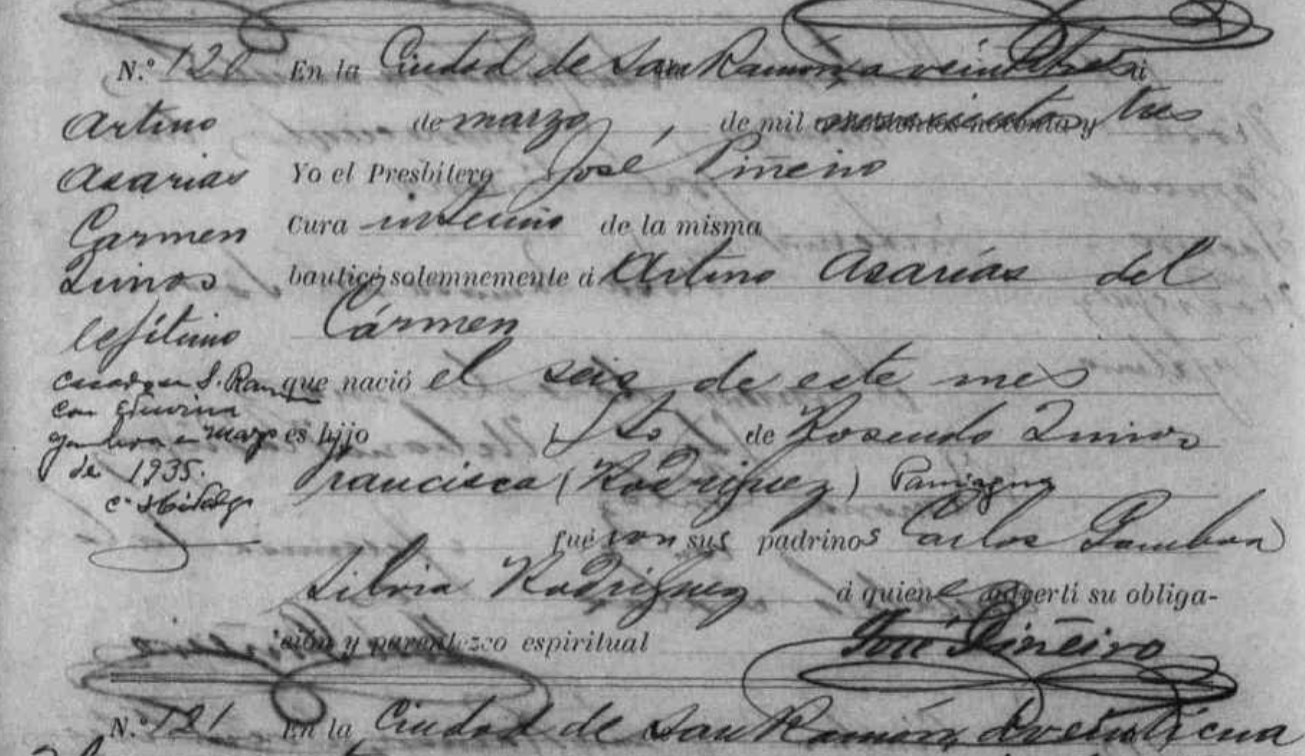 N.º 120 En la Ciudad de San Ramón, a veintitres
Artino de marzo, de mil novecientos y tres
Asarias Yo el Presbítero José Piñeiro
Carmen Cura interino de la misma
Quiros bauticé solemnemente á Artino Asarías del
lejítimo Cármen
casado en S. Ramon que nació el seis de este mes
con
Gamboa en marzo es hijo lto de Rosendo Quiros
de 1935. Francisca (Rodriguez) Paniagua
C. Hidalgo
fueron sus padrinos Carlos Gamboa
Silvia Rodriguez á quienes advertí su obliga-
ción y parentezco espiritual José Piñeiro
N.º 121 En la Ciudad de San Ramón, a veinticua